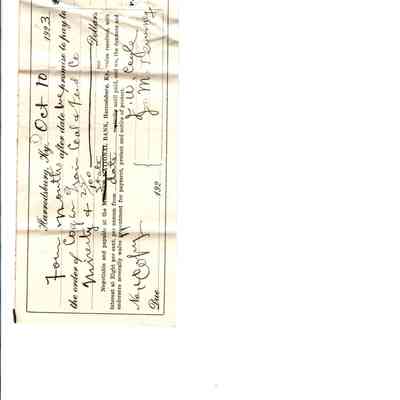 Harrodsburg, Ky., Oct 10 1923
Four months after date we promise to pay to
the order of Coghar Grain Coal & Feed Co
Ninety & 25/100 Dollars
Negotiable and payable at the State NATIONAL BANK, Harrodsburg, Ky., value received, with
interest at Eight per cent. per annum from date until paid, and we, the drawers and
endorsers severally waive presentment for payment, protest and notice of protest.
No. Copy
J. W.
J. M.
Due 192